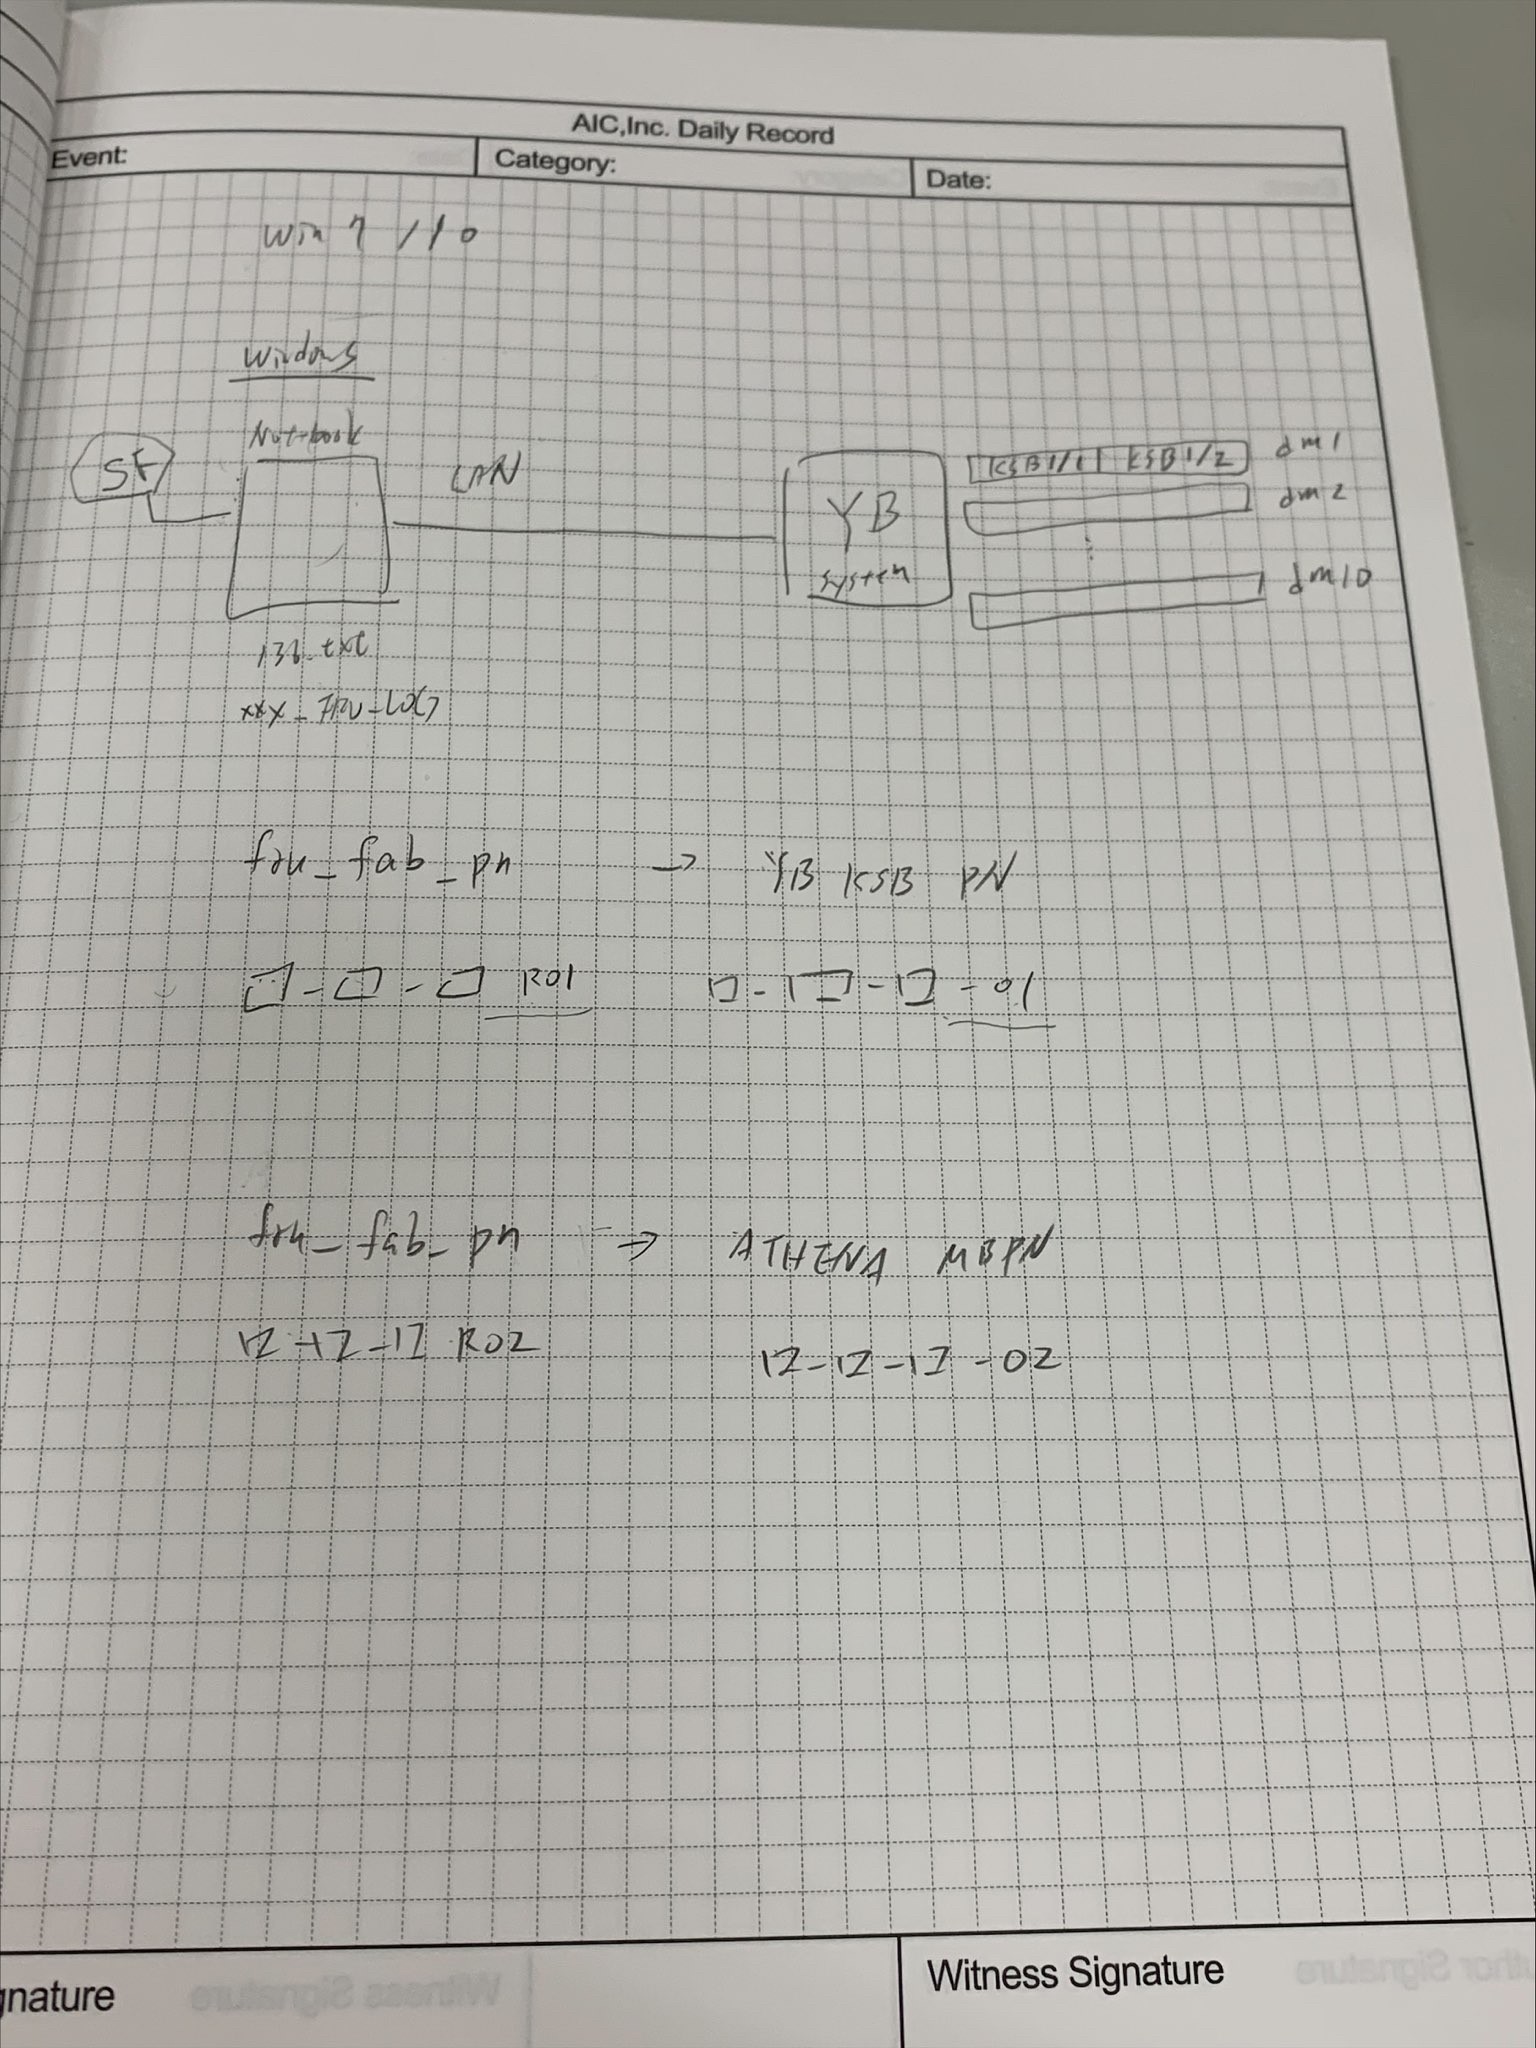 AIC,Inc. Daily Record
Event:
Category:
Date:
Win 7 /10
Windows
Notebook
SF
LAN
YB
system
KSB1/1 KSB1/2 dm1
dm2
dm10
136.txt
xxx_FRU_LOG
fru_fab_pn → YB KSB PN
□-□-□ R01 □-□-□-01
fru_fab_pn → ATHENA MBPN
□-□-□ R02 □-□-□-02
gnature
Witness Signature